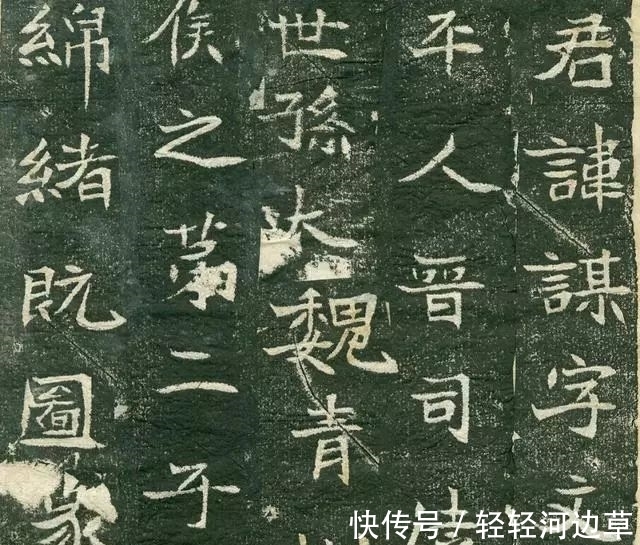 君諱謀字
平人晉司
世孫大魏青
侯之第二子
綿緒既圖
快传号 / 轻轻河边草